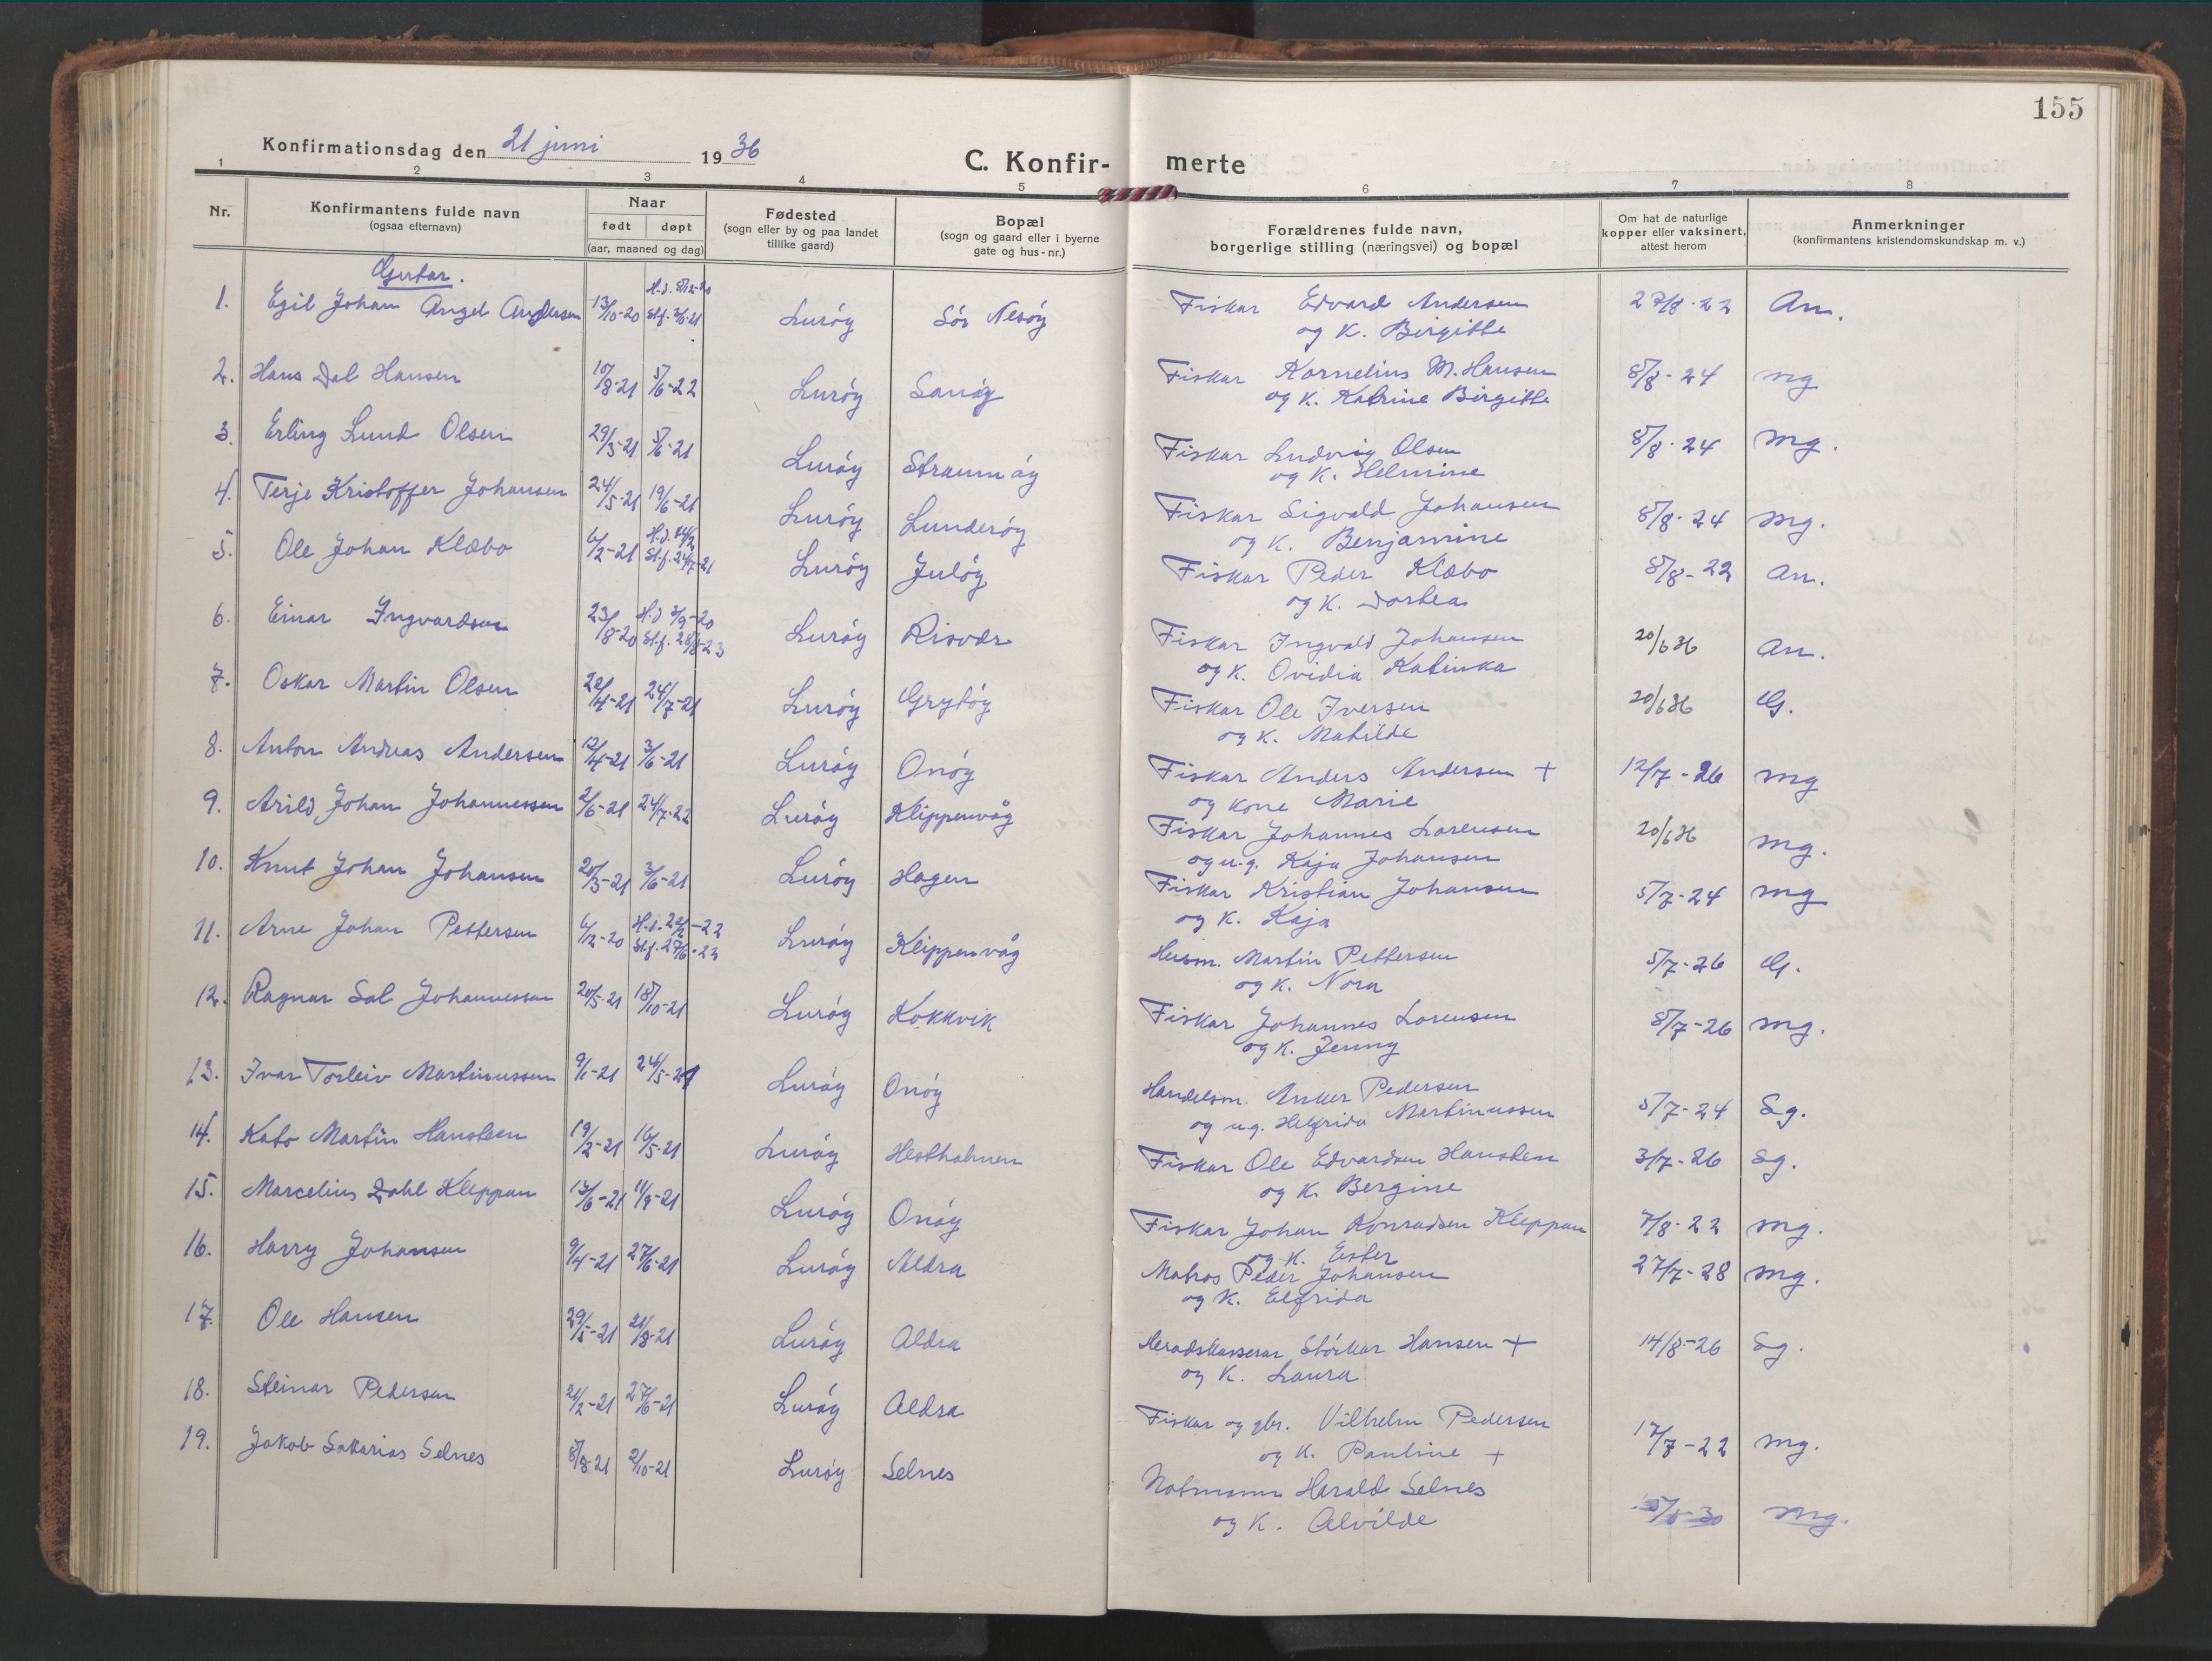 155
Konfirmationsdag den 21 juni 1936
C. Konfirmerte
1 2 3 4 5 6 7 8
Nr. | Konfirmantens fulde navn (ogsaa efternavn) | Naar født døpt (aar, maaned og dag) | Fødested (sogn eller by og paa landet tillike gaard) | Bopæl (sogn og gaard eller i byerne gate og hus-nr.) | Forældrenes fulde navn, borgerlige stilling (næringsvei) og bopæl | Om hat de naturlige kopper eller vaksinert, attest herom | Anmerkninger (konfirmantens kristendomskundskap m. v.)
Gutar.
1. Egil Johan Angel Andersen 13/10-20 H.d. 8/12-20 St.f. 3/6-21 Lurøy Sør Nesøy Fiskar Edvard Andersen 27/8-22 An.
og K. Birgitte
2. Hans Dal Hansen 10/8-21 5/6-22 Lurøy Sanøy Fiskar Kornelius M. Hansen 8/8-24 mg
og K. Katrine Birgitte
3. Erling Lund Olsen 29/3-21 5/6-21 Lurøy Straumøy Fiskar Ludvig Olsen 8/8-24 mg.
og K. Helmine
4. Terje Kristoffer Johansen 24/5-21 19/6-21 Lurøy Lunderøy Fiskar Sigvald Johansen 8/8-24 mg.
og K. Benjamine
5. Ole Johan Klæbo 6/2-21 H.d. 14/2 St.f. 24/7-21 Lurøy Juløy Fiskar Peder Klæbo 8/8-22 An.
og K. Dortea
6. Einar Ingvardsen 23/8-20 H.d 3/9-20 St.f. 28/8-23 Lurøy Risvær Fiskar Ingvald Johansen 20/6 36 An.
og K. Ovidia Katinka
7. Oskar Martin Olsen 22/4-21 24/7-21 Lurøy Grytøy Fiskar Ole Iversen 20/6 36 G.
og K. Matilde
8. Anton Andreas Andersen 12/4-21 3/6-21 Lurøy Onøy Fiskar Anders Andersen + 12/7-26 mg
og kone Marie
9. Arild Johan Johannessen 2/6-21 24/7-22 Lurøy Klippenvåg Fiskar Johannes Lorensen 20/6 36 mg.
og u.g. Kaja Johansen
10. Knut Johan Johansen 20/3-21 3/6-21 Lurøy Hagen Fiskar Kristian Johansen 5/7-24 mg
og K. Kaja
11. Arne Johan Pettersen 6/12-20 H.d. 22/2-22 St.f. 27/6-23 Lurøy Klippenvåg Husm. Martin Pettersen 5/7-26 G.
og K. Nora
12. Ragnar Sol Johannessen 20/5-21 18/10-21 Lurøy Kokkvik Fiskar Johannes Lorensen 8/7-26 mg.
og K. Jenny
13. Ivar Torleiv Martinussen 9/1-21 24/5-21 Lurøy Onøy Handelsm. Anker Pedersen 5/7-24 Sg.
og u.g. Helfrida Martinussen
14. Kato Martin Hansteen 19/2-21 16/5-21 Lurøy Hestholmen Fiskar Ole Edvardsen Hansteen 3/7-26 Sg.
og K. Bergine
15. Marcelius Zahl Kleppan 13/6-21 11/9-21 Lurøy Onøy Fiskar Johan Konradsen Kleppan 7/8-22 mg.
og K. Ester
16. Harry Johansen 9/4-21 27/6-21 Lurøy Aldra Matros Peder Johansen 27/7-28 mg.
og K. Elfrida
17. Ole Hansen 29/5-21 21/8-21 Lurøy Aldra Heradskasserar Størker Hansen + 14/8-26 Sg.
og K. Laura
18. Steinar Pedersen 21/2-21 27/6-21 Lurøy Aldra Fiskar og gbr. Vilhelm Pedersen 17/7-22 mg.
og K. Pauline +
19. Jakob Sakarias Selnes 8/8-21 2/10-21 Lurøy Selnes Notmann Harald Selnes mg.
og K. Alvilde